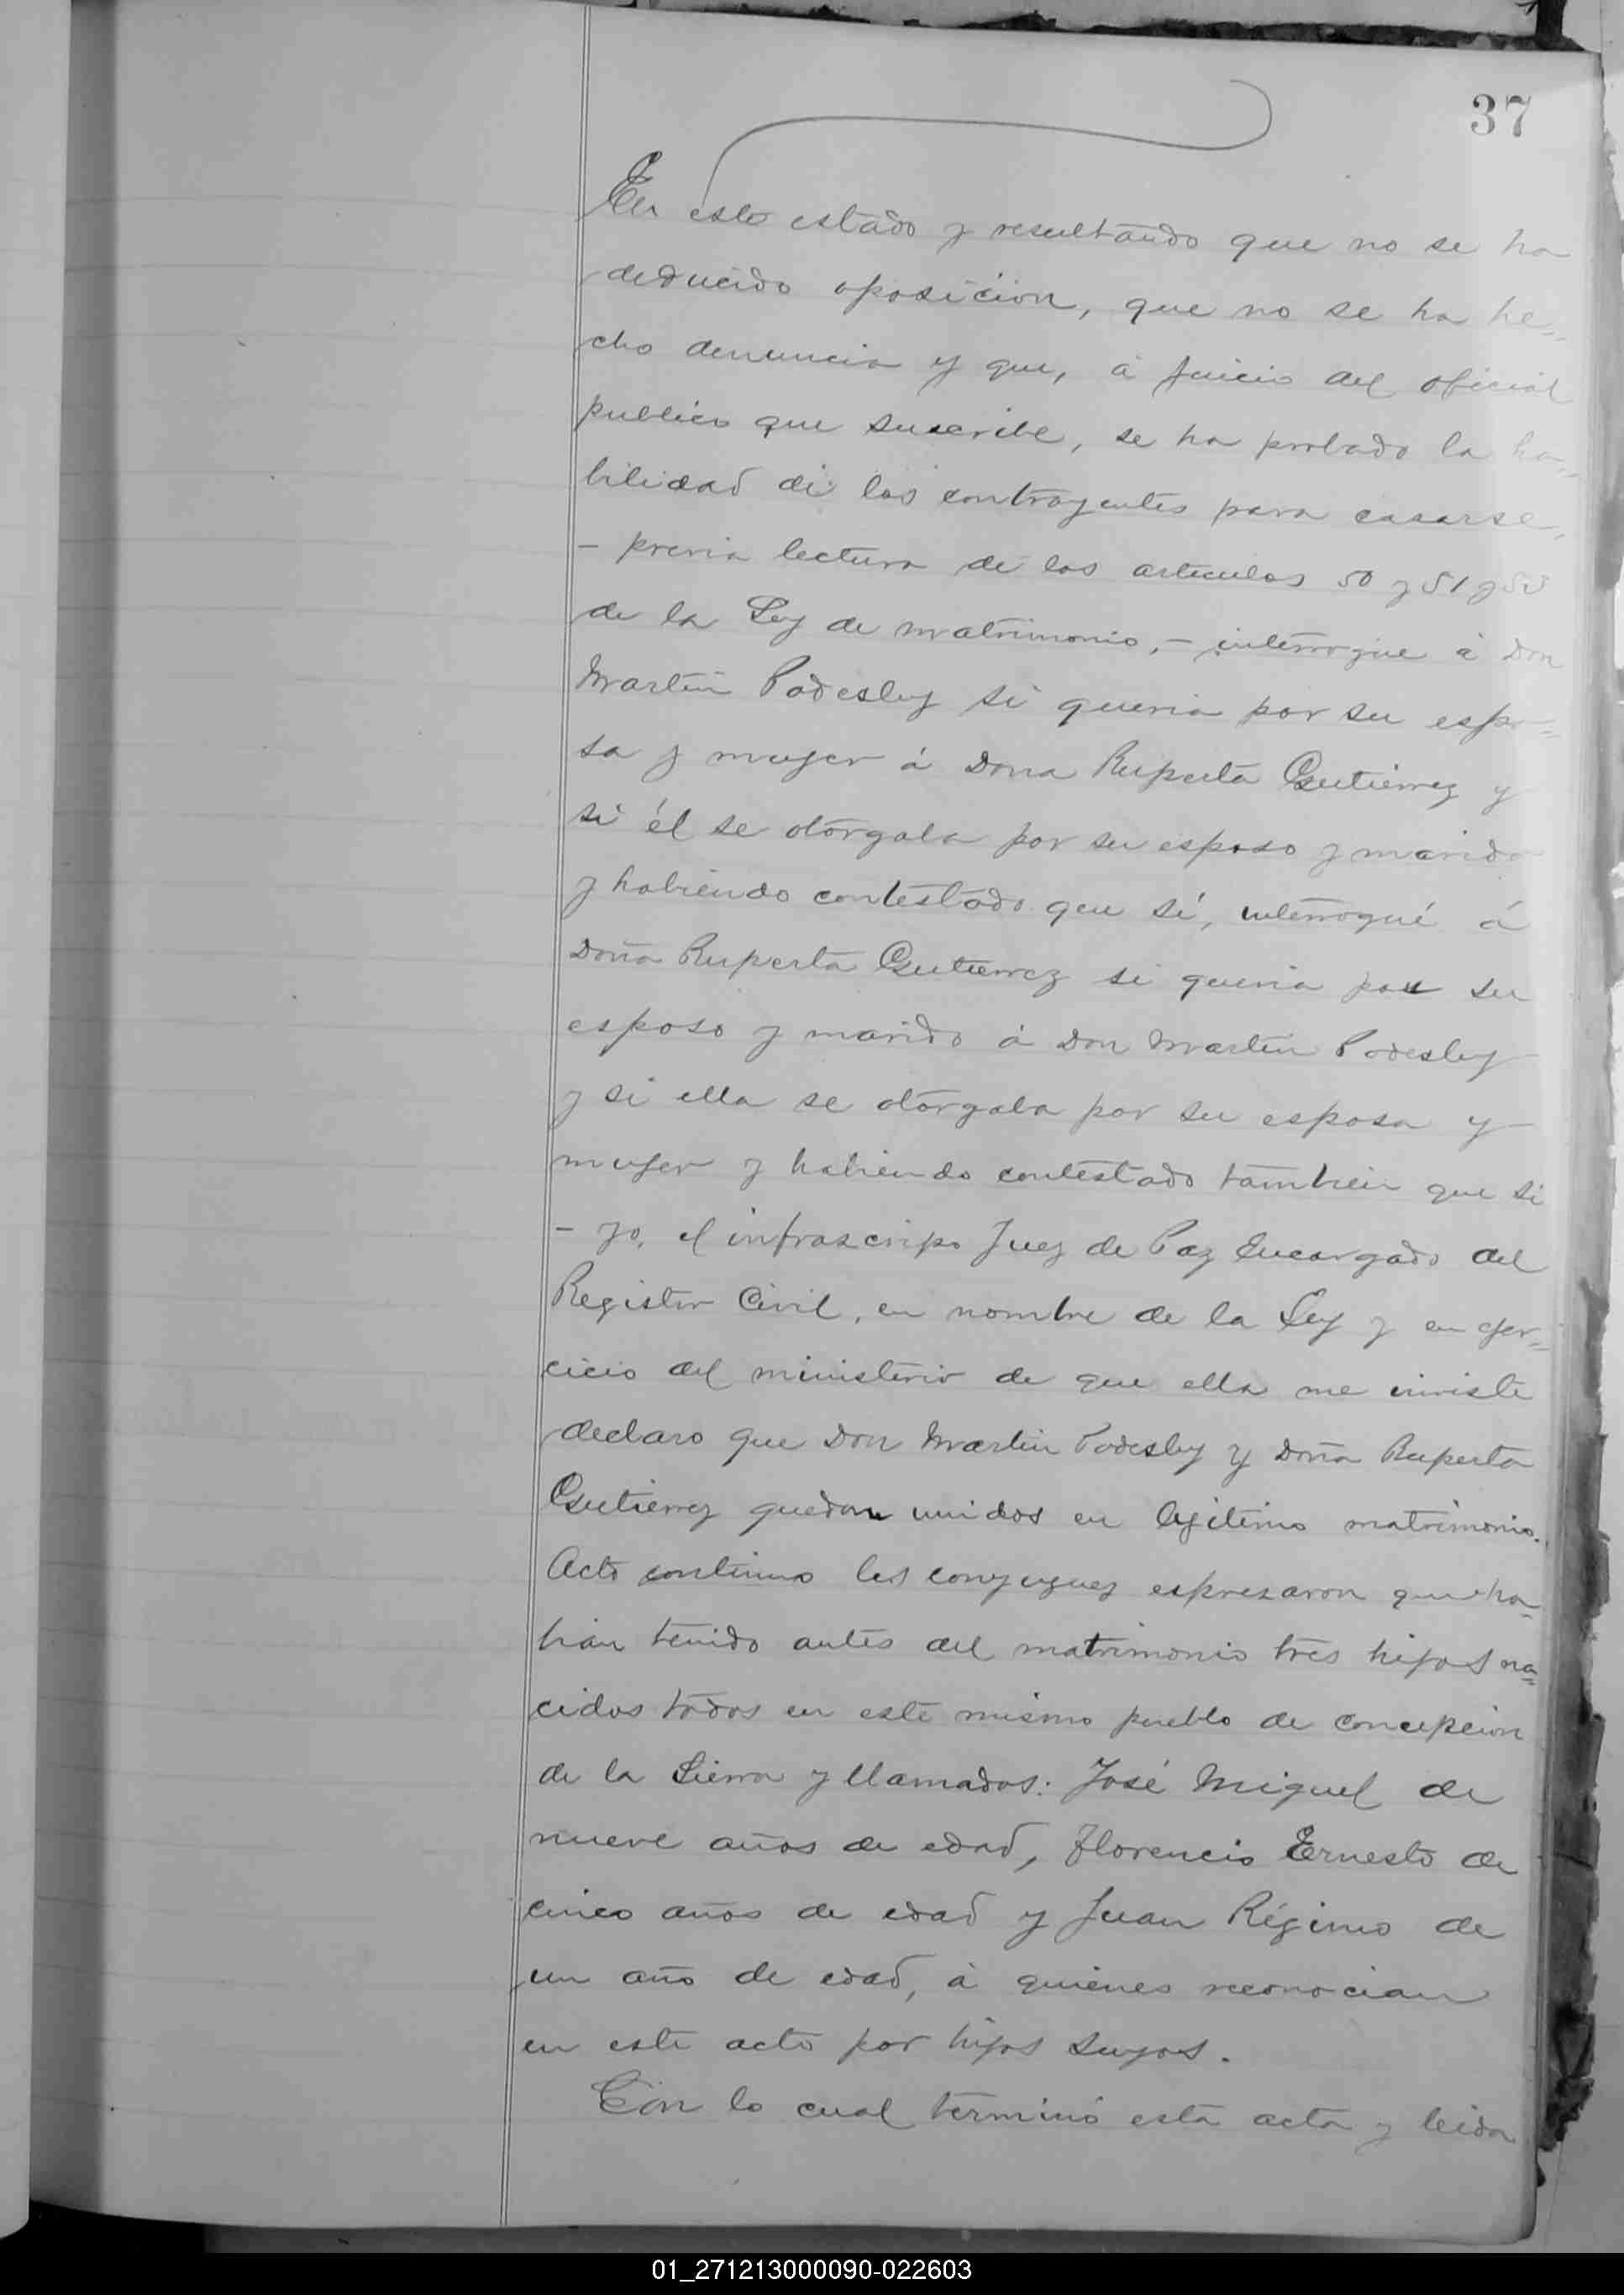 37
En este estado y resultando que no se ha
deducido oposición, que no se ha he-
cho denuncia y que, á juicio del oficial
publico que suscribe, se ha probado la ha-
bilidad de los contrayentes para casarse,
- previa lectura de los articulos 50 y 51 y 53
de la Ley de matrimonio, - interrogué á Don
Martin Podesley si queria por su espo=
sa y mujer á Dona Ruperta Gutierrez y
si él se otorgaba por su esposo y marido
y habiendo contestado que sí, interrogué á
Doña Ruperta Gutierrez si queria por su
esposo y marido á Don Martin Podesley
y si ella se otorgaba por su esposa y
mujer y habiendo contestado tambien que si
- yo, el infrascripo Juez de Paz Encargado del
Registro Civil, en nombre de la Ley y en ejer=
cicio del ministerio de que ella me inviste
declaro que Don Martin Podesley y Doña Ruperta
Gutierrez quedan unidos en legitimo matrimonio.
Acto continuo los conyuguez espresaron que ha-
bian tenido antes del matrimonio tres hijos na=
cidos todos en este mismo pueblo de Concepcion
de la Sierra y llamados: José Miguel de
nueve años de edad, Florencio Ernesto de
cinco años de edad y Juan Régimo de
un año de edad, á quienes reconocian
en este acto por hijos suyos.
Con lo cual terminó esta acta y leida
01_271213000090-022603